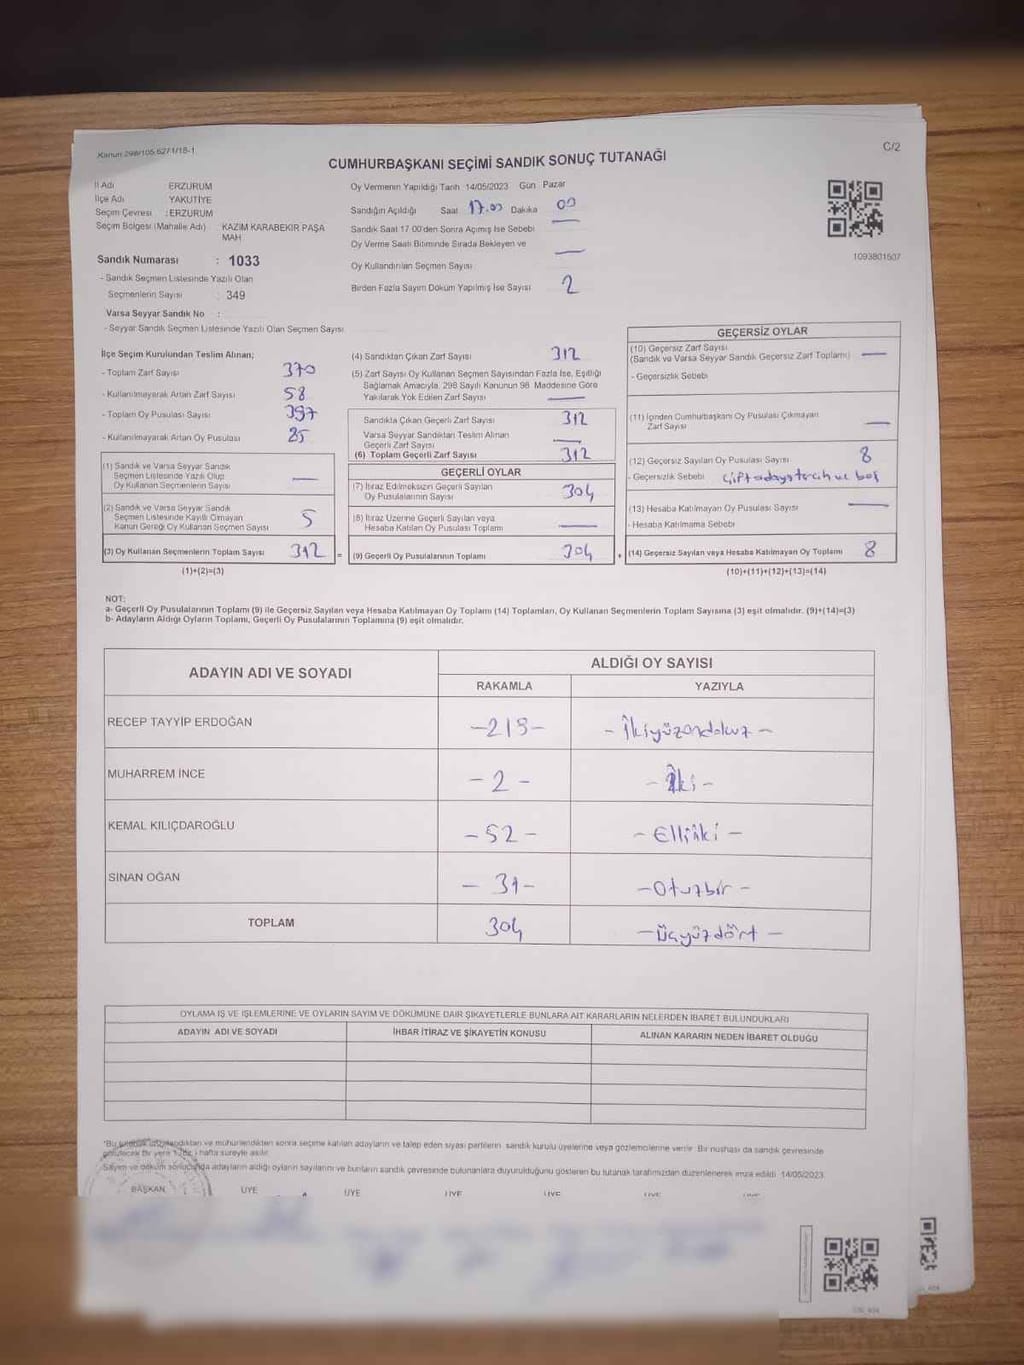 Kanun 298/105,6271/18-1
C/2
CUMHURBAŞKANI SEÇİMİ SANDIK SONUÇ TUTANAĞI
İl Adı ERZURUM
İlçe Adı YAKUTİYE
Seçim Çevresi :ERZURUM
Seçim Bölgesi (Mahalle Adı) KAZIM KARABEKİR PAŞA
MAH
Sandık Numarası : 1033
- Sandık Seçmen Listesinde Yazılı Olan
Seçmenlerin Sayısı : 349
Varsa Seyyar Sandık No :
- Seyyar Sandık Seçmen Listesinde Yazılı Olan Seçmen Sayısı
Oy Vermenin Yapıldığı Tarih 14/05/2023 Gün Pazar
Sandığın Açıldığı Saat 17.00 Dakika 00
Sandık Saat 17.00'den Sonra Açılmış İse Sebebi —
Oy Verme Saati Bitiminde Sırada Bekleyen ve
Oy Kullandırılan Seçmen Sayısı —
Birden Fazla Sayım Döküm Yapılmış İse Sayısı 2
1093801507
İlçe Seçim Kurulundan Teslim Alınan;
- Toplam Zarf Sayısı 370
- Kullanılmayarak Artan Zarf Sayısı 58
- Toplam Oy Pusulası Sayısı 397
- Kullanılmayarak Artan Oy Pusulası 85
(1) Sandık ve Varsa Seyyar Sandık
Seçmen Listesinde Yazılı Olup
Oy Kullanan Seçmenlerin Sayısı —
(2) Sandık ve Varsa Seyyar Sandık
Seçmen Listesinde Kayıtlı Olmayan
Kanun Gereği Oy Kullanan Seçmen Sayısı 5
(3) Oy Kullanan Seçmenlerin Toplam Sayısı 312 =
(1)+(2)=(3)
(4) Sandıktan Çıkan Zarf Sayısı 312
(5) Zarf Sayısı Oy Kullanan Seçmen Sayısından Fazla İse, Eşitliği
Sağlamak Amacıyla, 298 Sayılı Kanunun 98. Maddesine Göre
Yakılarak Yok Edilen Zarf Sayısı —
Sandıkta Çıkan Geçerli Zarf Sayısı 312
Varsa Seyyar Sandıktan Teslim Alınan
Geçerli Zarf Sayısı —
(6) Toplam Geçerli Zarf Sayısı 312
GEÇERLİ OYLAR
(7) İtiraz Edilmeksizin Geçerli Sayılan
Oy Pusulalarının Sayısı 304
(8) İtiraz Üzerine Geçerli Sayılan veya
Hesaba Katılan Oy Pusulaları Toplamı —
(9) Geçerli Oy Pusulalarının Toplamı 304 +
GEÇERSİZ OYLAR
(10) Geçersiz Zarf Sayısı
(Sandık ve Varsa Seyyar Sandık Geçersiz Zarf Toplamı) —
- Geçersizlik Sebebi
(11) İçinden Cumhurbaşkanı Oy Pusulası Çıkmayan
Zarf Sayısı —
(12) Geçersiz Sayılan Oy Pusulası Sayısı 8
- Geçersizlik Sebebi Çift adaya tercih ve boş
(13) Hesaba Katılmayan Oy Pusulası Sayısı —
- Hesaba Katılmama Sebebi
(14) Geçersiz Sayılan veya Hesaba Katılmayan Oy Toplamı 8
(10)+(11)+(12)+(13)=(14)
NOT:
a- Geçerli Oy Pusulalarının Toplamı (9) ile Geçersiz Sayılan veya Hesaba Katılmayan Oy Toplamı (14) Toplamları, Oy Kullanan Seçmenlerin Toplam Sayısına (3) eşit olmalıdır. (9)+(14)=(3)
b- Adayların Aldığı Oyların Toplamı, Geçerli Oy Pusulalarının Toplamına (9) eşit olmalıdır.
ADAYIN ADI VE SOYADI ALDIĞI OY SAYISI
RAKAMLA YAZIYLA
RECEP TAYYİP ERDOĞAN -219- - İkiyüzondokuz -
MUHARREM İNCE - 2 - - İki -
KEMAL KILIÇDAROĞLU - 52 - - Elliiki -
SİNAN OĞAN - 31 - - Otuzbir -
TOPLAM 304 - Üçyüzdört -
OYLAMA İŞ VE İŞLEMLERİNE VE OYLARIN SAYIM VE DÖKÜMÜNE DAİR ŞİKAYETLERLE BUNLARA AİT KARARLARIN NELERDEN İBARET BULUNDUKLARI
ADAYIN ADI VE SOYADI İHBAR İTİRAZ VE ŞİKAYETİN KONUSU ALINAN KARARIN NEDEN İBARET OLDUĞU
*Bu tutanak imzalandıktan ve mühürlendikten sonra seçime katılan adayların ve talep eden siyasi partilerin sandık kurulu üyelerine veya gözlemcilerine verilir. Bir nüshası da sandık çevresinde
görülecek bir yere 1 (bir) hafta süreyle asılır.
Sayım ve döküm sonucunda adayların aldığı oyların sayılarını ve bunların sandık çevresinde bulunanlara duyurulduğunu gösteren bu tutanak tarafımızdan düzenlenerek imza edildi. 14/05/2023
BAŞKAN ÜYE ÜYE ÜYE ÜYE ÜYE ÜYE